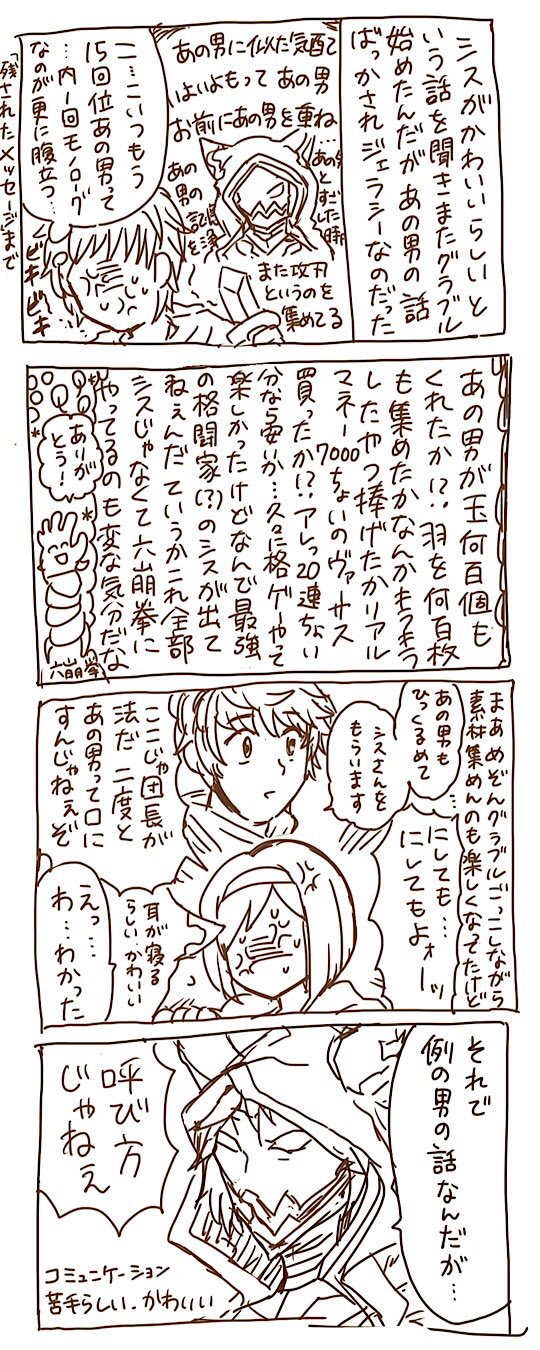 シスがかわいいらしいと
いう話を聞きまたグラブル
始めたんだがあの男の話
ばっかされジェラシーなのだった
あの男に似た気配て
いよいよもって あの男
お前にあの男を重ね…
あの男
とすごした時
あの男の記憶
を浄
また攻刃
というのを
集めてる
こ…こいつもう
15回位あの男って
…内1回モノローグ
なのが更に腹立つ…
ビキ
ビキ
「残されたメッセージ」まで
あの男が玉何百個も
くれたか!?羽を何百枚
も集めたかなんかキラキラ
したやつ捧げたかリアル
マネー7000ちょいのヴァーサス
買ったか!?アレっ20連ちょい
分なら安いか…久々に格ゲーやって
楽しかったけどなんで最強
の格闘家(?)のシスが出て
ねぇんだ ていうかこれ全部
シスじゃなくて六崩拳に
やってるのも変な気分だな
ありが
とう!
六崩拳
まああめぞんグラブルごっこしながら
素材集めんのも楽しくなってたけど
…にしても…
にしてもよォーッ
あの男も
ひっくるめて
シスさんを
もらいます
ここじゃ団長が
法だ 二度と
あの男って口に
すんじゃねぇぞ
耳が寝る
らしい…かわいい
えっ…
わ…わかった
それで
例の男の話なんだが…
呼び方
じゃねぇ
コミュニケーション
苦手らしい.かわいい